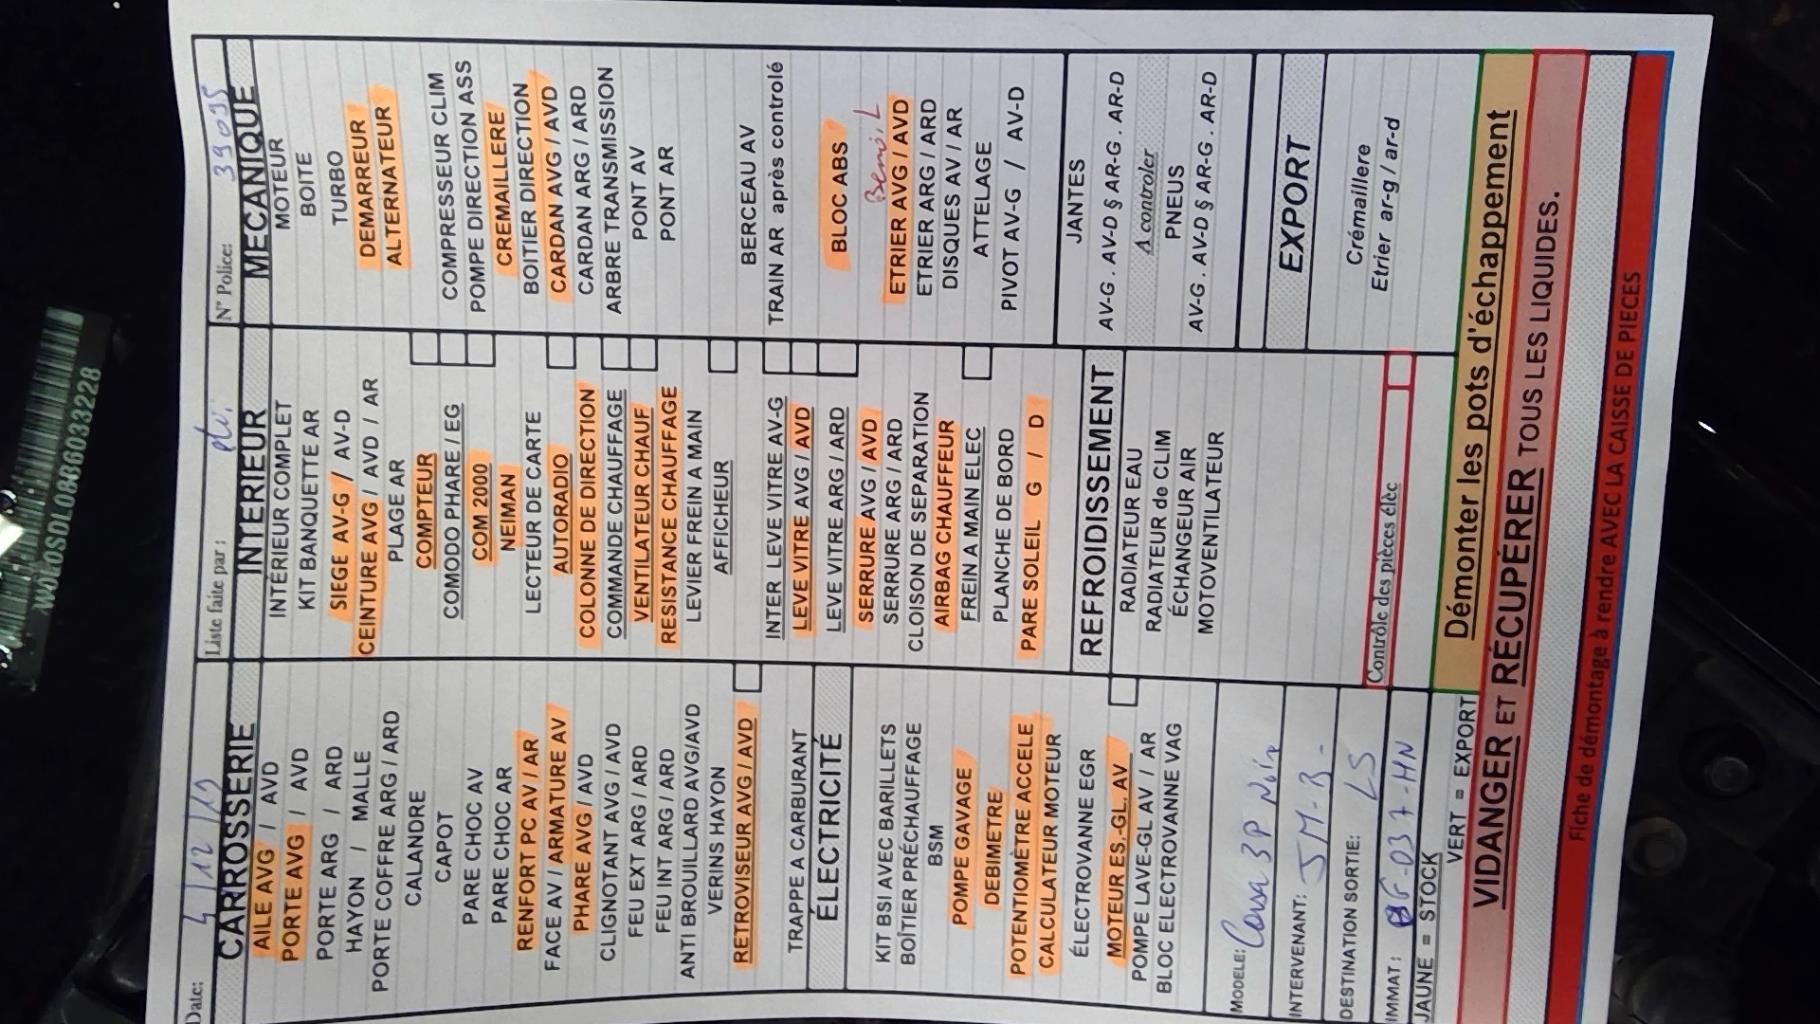 Date: 4/12/19
Liste faite par :
N° Police: 39095
CARROSSERIE
AILE AVG / AVD
PORTE AVG / AVD
PORTE ARG / ARD
HAYON / MALLE
PORTE COFFRE ARG / ARD
CALANDRE
CAPOT
PARE CHOC AV
PARE CHOC AR
RENFORT PC AV / AR
FACE AV / ARMATURE AV
PHARE AVG / AVD
CLIGNOTANT AVG / AVD
FEU EXT ARG / ARD
FEU INT ARG / ARD
ANTI BROUILLARD AVG/AVD
VERINS HAYON
RETROVISEUR AVG / AVD
TRAPPE A CARBURANT
ÉLECTRICITÉ
KIT BSI AVEC BARILLETS
BOÎTIER PRÉCHAUFFAGE
BSM
POMPE GAVAGE
DEBIMETRE
POTENTIOMÈTRE ACCELE
CALCULATEUR MOTEUR
ÉLECTROVANNE EGR
MOTEUR ES.-GL. AV
POMPE LAVE-GL AV / AR
BLOC ELECTROVANNE VAG
MODELE: Corsa 3P Noir
INTERVENANT: JM-B-
DESTINATION SORTIE: LS
IMMAT : BG-037-HN
JAUNE = STOCK
VERT = EXPORT
INTERIEUR
INTÉRIEUR COMPLET
KIT BANQUETTE AR
SIEGE AV-G / AV-D
CEINTURE AVG / AVD / AR
PLAGE AR
COMPTEUR
COMODO PHARE / EG
COM 2000
NEIMAN
LECTEUR DE CARTE
AUTORADIO
COLONNE DE DIRECTION
COMMANDE CHAUFFAGE
VENTILATEUR CHAUF
RESISTANCE CHAUFFAGE
LEVIER FREIN A MAIN
AFFICHEUR
INTER LEVE VITRE AV-G
LEVE VITRE AVG / AVD
LEVE VITRE ARG / ARD
SERRURE AVG / AVD
SERRURE ARG / ARD
CLOISON DE SEPARATION
AIRBAG CHAUFFEUR
FREIN A MAIN ELEC
PLANCHE DE BORD
PARE SOLEIL G / D
REFROIDISSEMENT
RADIATEUR EAU
RADIATEUR de CLIM
ÉCHANGEUR AIR
MOTOVENTILATEUR
Contrôle des pièces élèc
MECANIQUE
MOTEUR
BOITE
TURBO
DEMARREUR
ALTERNATEUR
COMPRESSEUR CLIM
POMPE DIRECTION ASS
CREMAILLERE
BOITIER DIRECTION
CARDAN AVG / AVD
CARDAN ARG / ARD
ARBRE TRANSMISSION
PONT AV
PONT AR
BERCEAU AV
TRAIN AR après controlé
BLOC ABS
ETRIER AVG / AVD
ETRIER ARG / ARD
DISQUES AV / AR
ATTELAGE
PIVOT AV-G / AV-D
JANTES
AV-G . AV-D § AR-G . AR-D
A controler
PNEUS
AV-G . AV-D § AR-G . AR-D
EXPORT
Crémaillere
Etrier ar-g / ar-d
Démonter les pots d'échappement
VIDANGER ET RÉCUPÉRER TOUS LES LIQUIDES.
Fiche de démontage à rendre AVEC LA CAISSE DE PIECES
W0L0SDL08B6033228